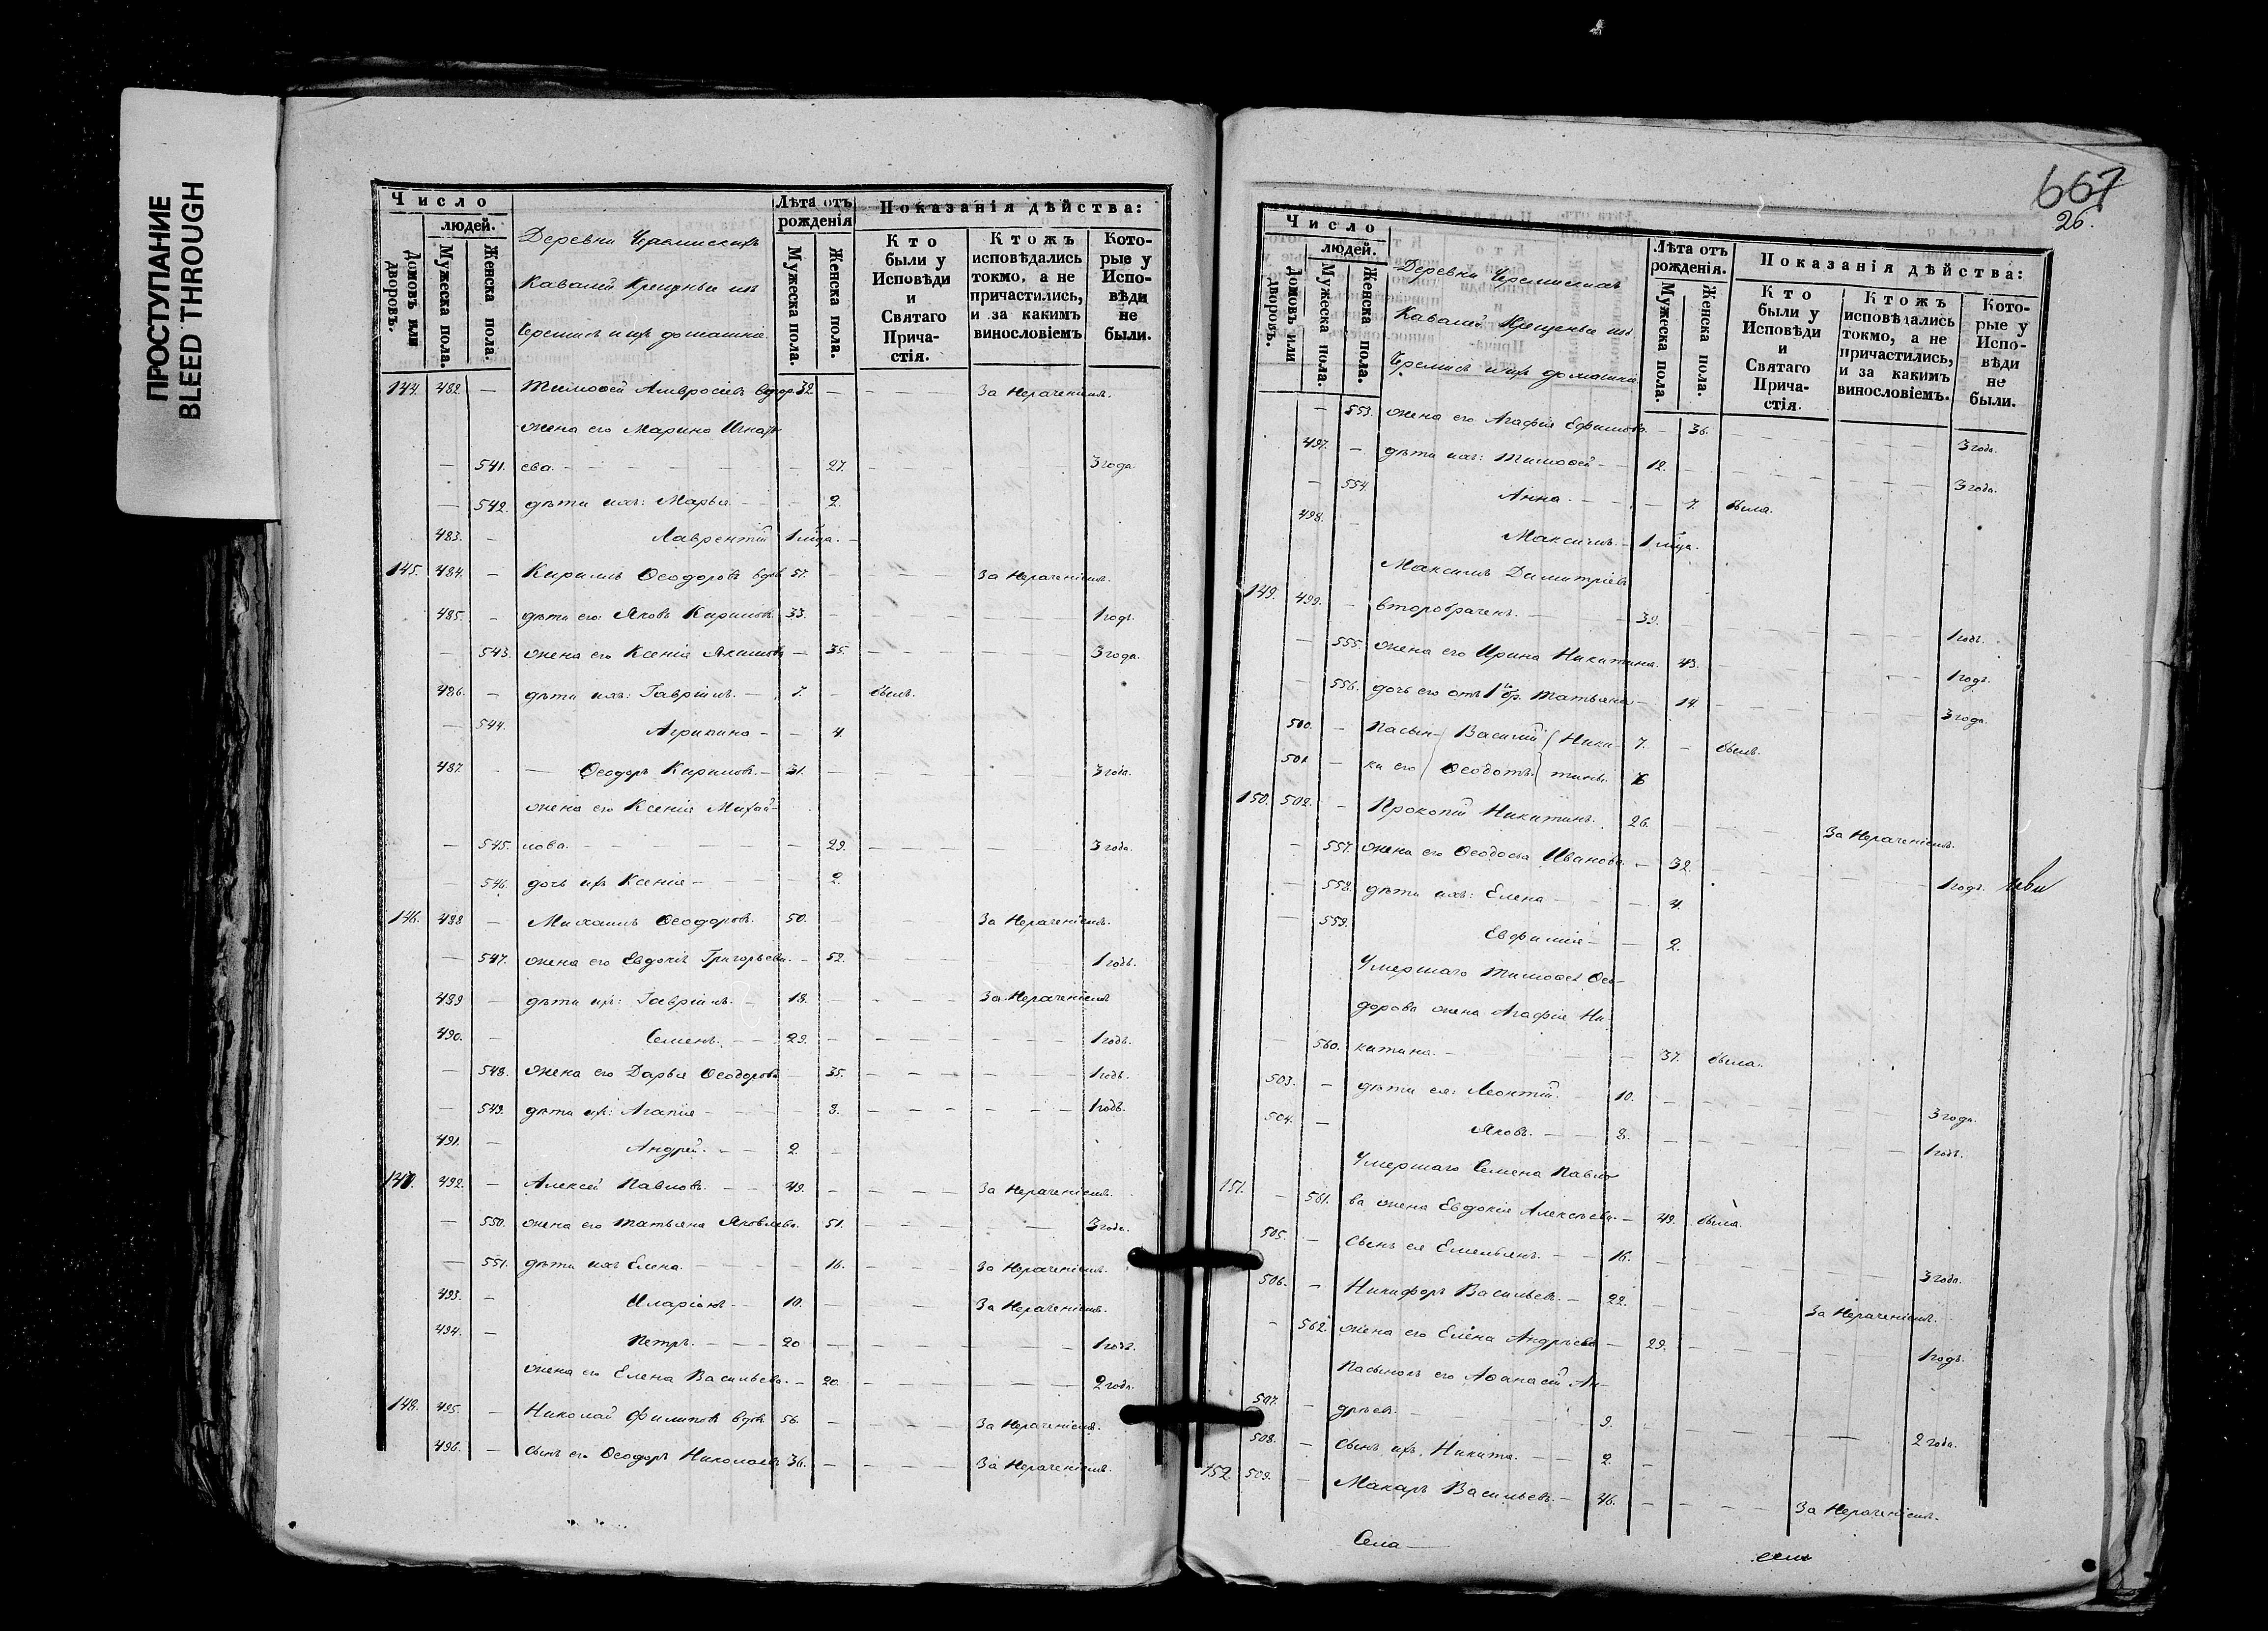 ПРОСТУПАНИЕ
BLEED THROUGH
Число
людей.
Домовъ или дворовъ.
Мужеска пола.
Женска пола.
Деревни
Кавалей Крещеные изъ
Черемисъ и ихъ домашніе
Лѣта отъ рожденія
Мужеска пола.
Женска пола.
Показанія дѣйства:
Кто были у Исповѣди и Святаго Прича-стія.
Ктожъ исповѣдались токмо, а не причастились, и за какимъ винословіемъ
Кото-рые у Испо-вѣди не были.
144. 482. — Тимоѳей Амвросіевъ 32 — — — За нераченіемъ.
жена его Марина Игнать-
— 541. ева. — — 27. — — — 3 года
— 542. дѣти ихъ: Марья. — — 2.
483. — Лаврентій 1 мца. —
145. 484. — Кирилъ Ѳеодоровъ вдов. 57. — — — За нераченіемъ.
485. — дѣти его: Яковъ Кириловъ 33. — — — 1 годъ.
— 543. жена его Ксенія Якимова — 35. — — — 3 года.
486. — дѣти ихъ: Гавріилъ. — 7. — былъ.
— 544. Агрипина — — 4.
487. — — Ѳеодоръ Кириловъ. — 31. — — — 3 года.
жена его Ксенія Михай-
— 545. лова. — — 29. — — — 3 года.
— 546. дочь ихъ Ксенія — — 2.
146. 488 — Михаилъ Ѳеодоровъ. 50. — — — За нераченіемъ.
— 547. жена его Евдокія Григорьева. — 52. — — — 1 годъ.
489 — дѣти ихъ: Гавріилъ. — 18. — — — За нераченіемъ
490. — Семенъ. — — 29. — — — 1 годъ.
— 548. жена его Дарья Ѳеодорова — 35. — — — 1 годъ.
— 549. дѣти ихъ: Агапія — — 8. — — — 1 годъ.
491. — Андрей. — — 2 —
147. 492. — Алексей Павловъ. — — 49. — — — За нераченіемъ.
— 550. жена его Татьяна Яковлева. 51. — — — 3 года.
— 551. дѣти ихъ Елена. — — 16. — — — За нераченіемъ.
493. — Иларіонъ — 10. — — — За нераченіемъ.
494. — Петръ. — — — 20 — — — 1 годъ.
жена его Елена Васильева. — 20. — — — 2 года.
148. 495. — Николай Филиповъ вдов. 56. — — — За нераченіемъ.
496. — сынъ его Ѳеодоръ Николаевъ 36. — — — За нераченіемъ.
667
26.
Число
людей.
Домовъ или дворовъ.
Мужеска пола.
Женска пола.
Деревни Черемискихъ
Кавалей Крещеные изъ
Черемисъ и ихъ домашніе
Лѣта отъ рожденія.
Мужеска пола.
Женска пола.
Показанія дѣйства:
Кто были у Исповѣди и Святаго Прича-стія.
Ктожъ исповѣдались токмо, а не причастились, и за какимъ винословіемъ.
Кото-рые у Испо-вѣди не были.
— 553. жена его Агафія Ефимова. — 36. — — — 3 года.
497. — дѣти ихъ: Тимоѳей — — 12. — — — 3 года.
— 554. Анна. — — — 7. была.
498. — Максимъ. — 1 мца.
Максимъ Димитріевъ
149. 499. — второбраченъ. — — 39. — — — 1 годъ.
— 555. жена его Ирина Никитина. 43. — — — 1 годъ.
— 556. дочь его отъ 1го бр. Татьяна — 14. — — — 3 года.
500. — Пасын- Василий Ники- 7. — былъ.
501. — ки его Ѳеодотъ тины. 6
150. 502. — Прокопій Никитинъ. 26. — — — За нераченіемъ.
— 557. жена его Ѳеодосья Иванова. — 32. — — — 1 годъ.
— 558. дѣти ихъ: Елена — — 4.
— 559. Евфимія — — 2.
Умершаго Тимоѳея Ѳео-
дорова жена Агафія Ни-
— 560. китина. — — 37. была.
503. — дѣти ея: Леонтій. 10. — — — 3 года.
504. — Яковъ. — — 8. — — — 1 годъ.
Умершаго Семена Павло-
151. — 561. ва жена Евдокія Алексѣева. — 49. была.
505. — сынъ ея Емельянъ. — — 16. — — — 3 года.
506. — Никифоръ Васильевъ. — 22. — — — За нераченіемъ.
— 562. жена его Елена Андрѣева — 29. — — — 1 годъ.
Пасынокъ его Аѳанасій Ан-
507. — дрѣевъ. — 9. — — — 2 года.
508. — сынъ ихъ Никита. — — 2. —
152. 509. — Макаръ Васильевъ. — 46. — — — За нераченіемъ.
Села —